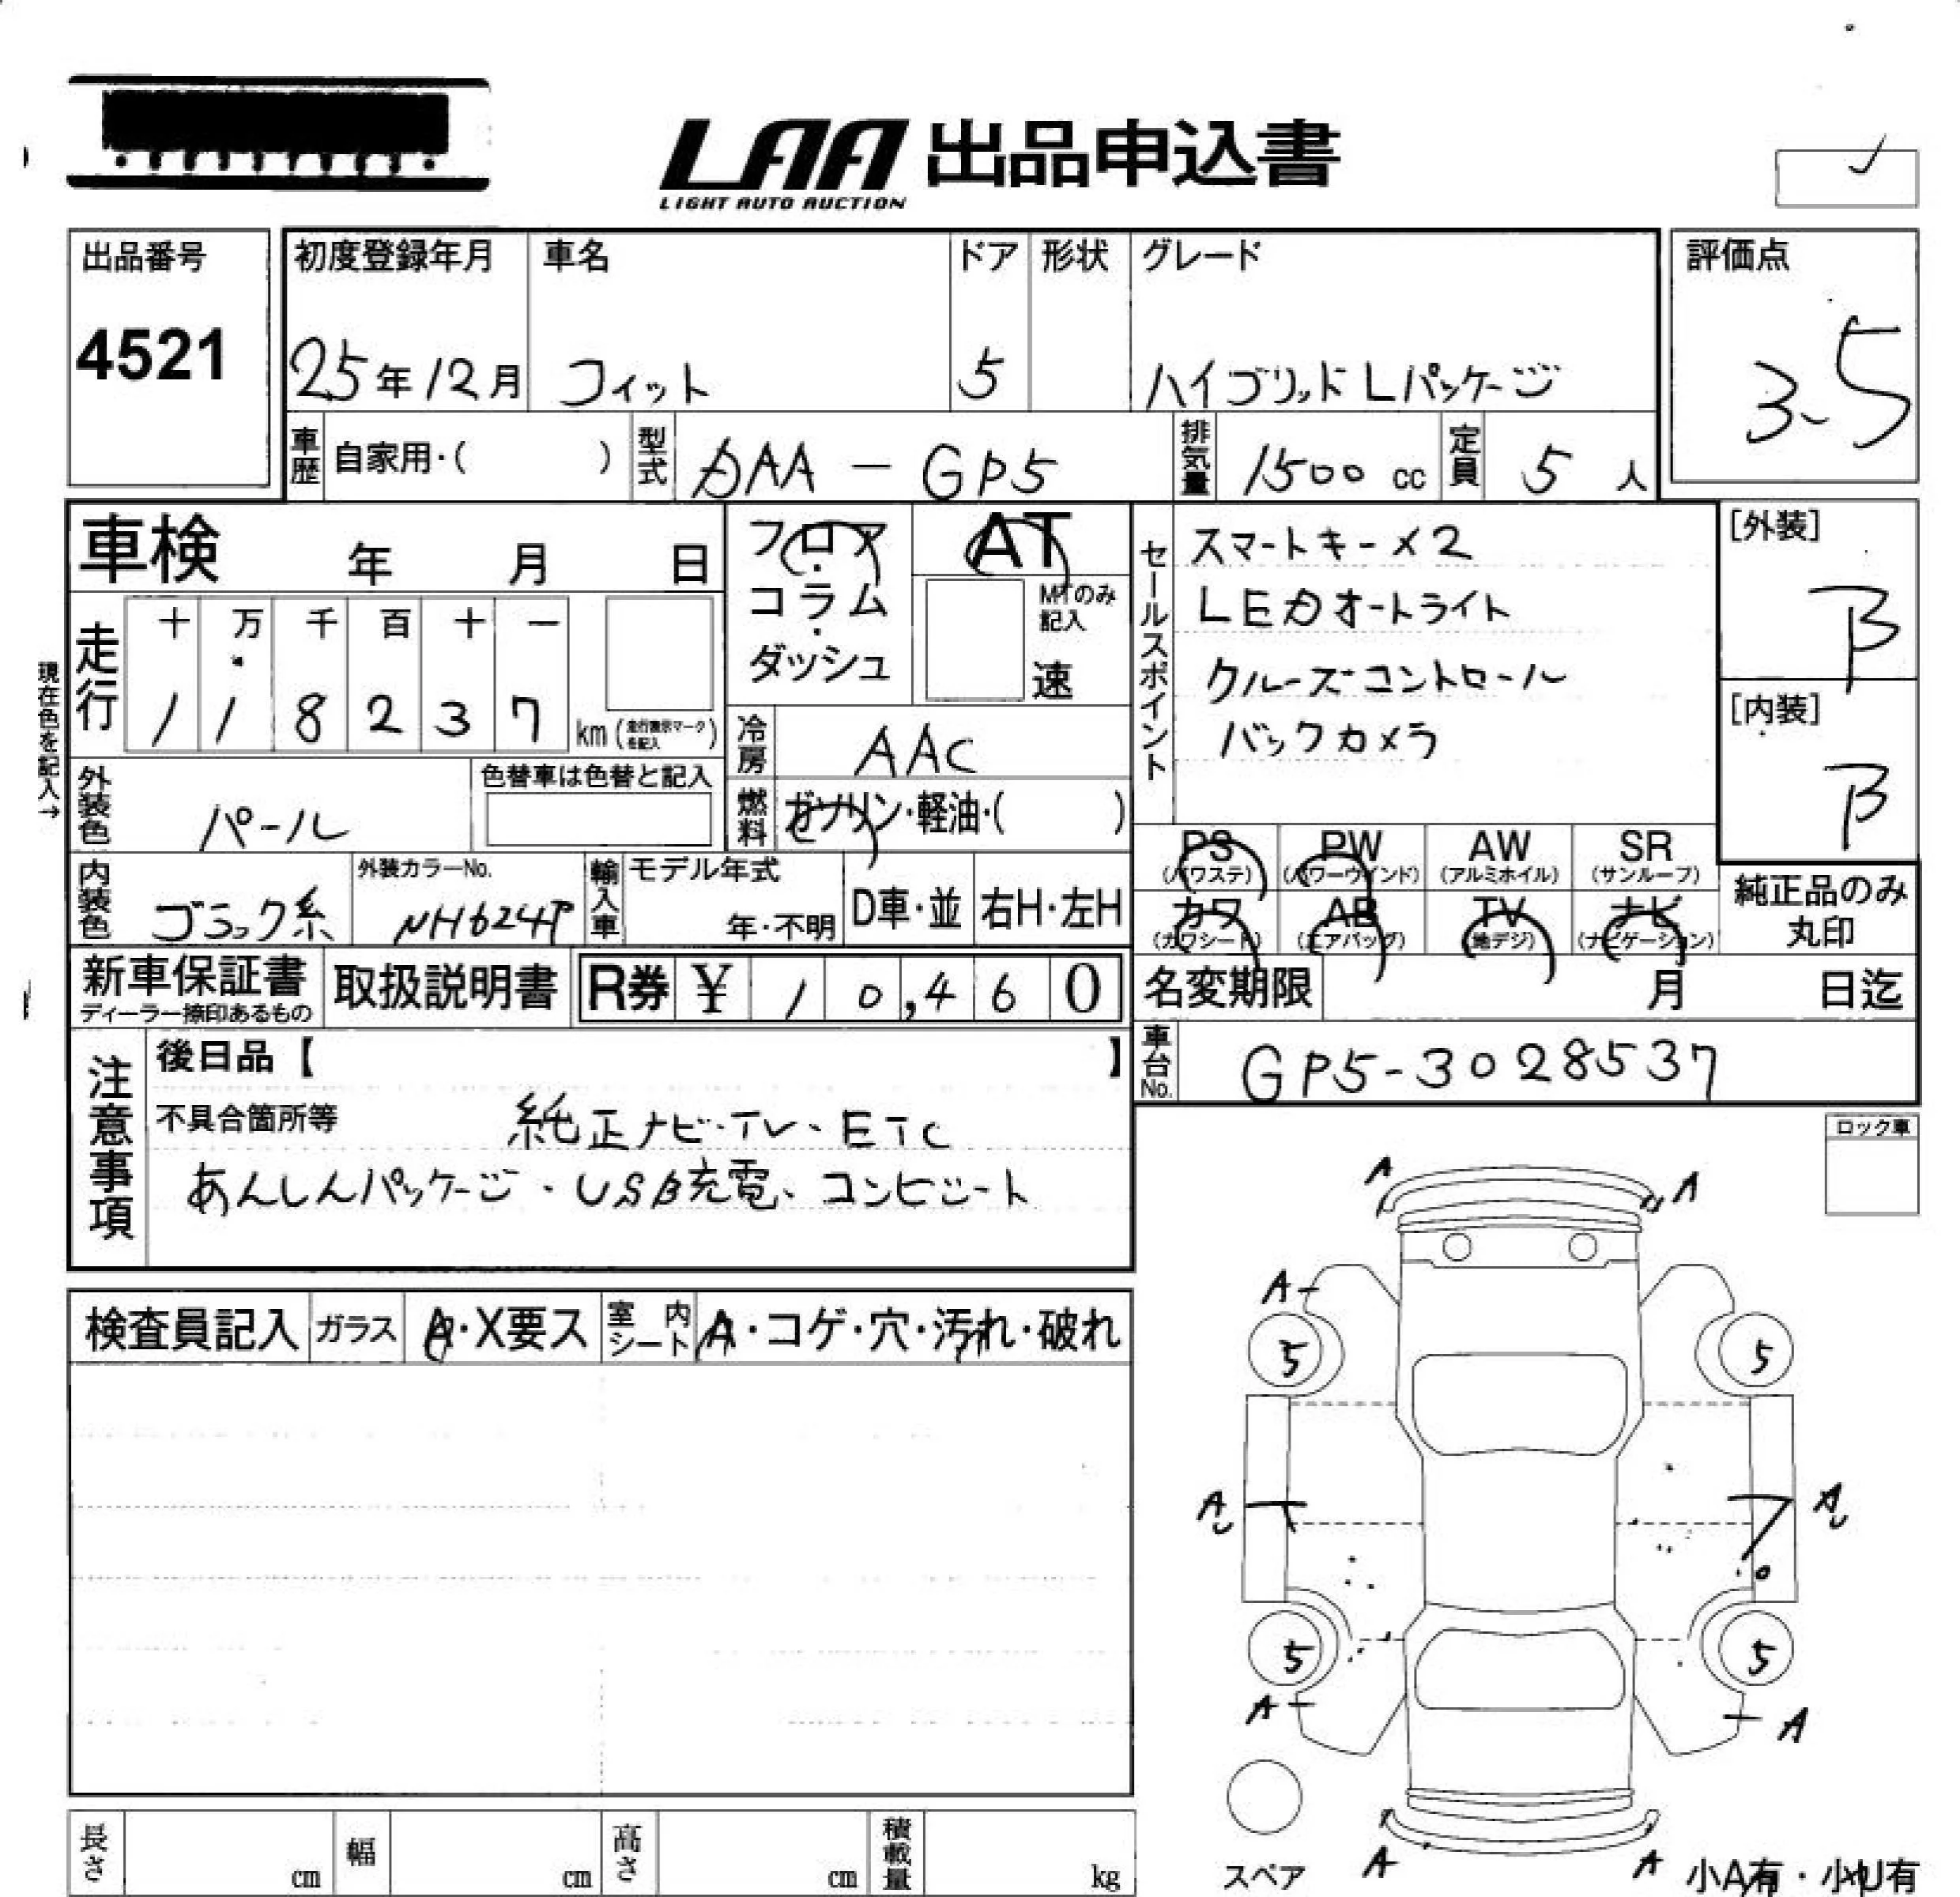 LAA 出品申込書
LIGHT AUTO AUCTION
出品番号
4521
初度登録年月
25年12月
車名
フィット
ドア
5
形状
グレード
ハイブリッド Lパッケージ
評価点
3.5
車歴 自家用・( )
型式 DAA-GP5
排気量 1500 cc
定員 5 人
車検 年 月 日
走行 十 万 千 百 十 一
1 1 8 2 3 7 km (走行表示マークを記入)
現在色を記入→
フロア・コラム・ダッシュ
AT
MTのみ記入
速
冷房 AAC
燃料 ガソリン・軽油・( )
セールスポイント
スマートキー×2
LEDオートライト
クルーズコントロール
バックカメラ
[外装]
B
[内装]
B
外装色 パール
色替車は色替と記入
内装色 ブラック系
外装カラーNo.
NH624P
輸入車 モデル年式
年・不明
D車・並 右H・左H
PS (パワステ)
PW (パワーウインド)
AW (アルミホイル)
SR (サンルーフ)
カワ (カワシート)
AB (エアバッグ)
TV (地デジ)
ナビ (ナビゲーション)
純正品のみ
丸印
新車保証書
ディーラー捺印あるもの
取扱説明書
R券 ¥ 10,460
名変期限 月 日迄
車台No. GP5-3028537
注意事項
後日品【 】
不具合箇所等 純正ナビ・TV・ETC
あんしんパッケージ・USB充電、コンビシート
ロック車
検査員記入 ガラス A・X要ス 室内シート A・コゲ・穴・汚れ・破れ
A A
A
5 5
A A
5 5
A A
A A
スペア
小A有・小U有
長さ cm 幅 cm 高さ cm 積載量 kg